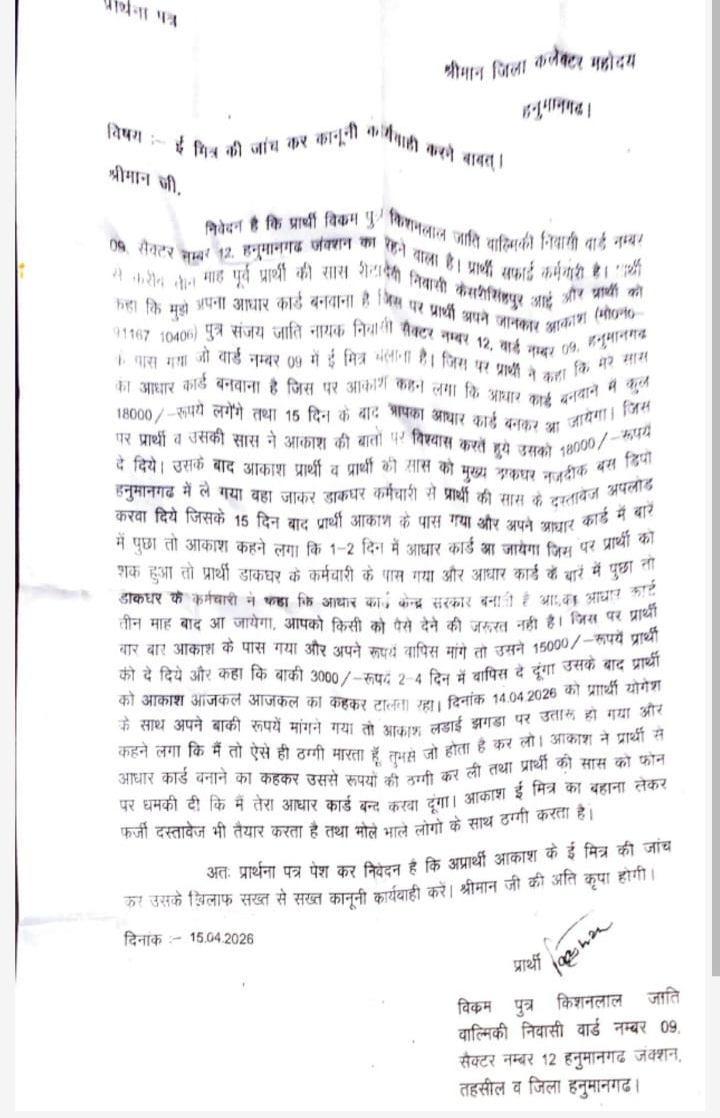 प्रार्थना पत्र
श्रीमान जिला कलेक्टर महोदय
हनुमानगढ।
विषय :– ई मित्र की जांच कर कानूनी कार्यवाही करने बाबत्।
श्रीमान जी,
निवेदन है कि प्रार्थी विक्रम पुत्र किशनलाल जाति वाल्मिकी निवासी वार्ड नम्बर
09, सैक्टर नम्बर 12, हनुमानगढ जंक्शन का रहने वाला है। प्रार्थी सफाई कर्मचारी है। प्रार्थी
से करीब तीन माह पूर्व प्रार्थी की सास निवासी केसरीसिंहपुर आई और प्रार्थी को
कहा कि मुझे अपना आधार कार्ड बनवाना है जिस पर प्रार्थी अपने जानकार आकाश (मो0न0
91167 10406) पुत्र संजय जाति नायक निवासी सैक्टर नम्बर 12, वार्ड नम्बर 09, हनुमानगढ
के पास गया जो वार्ड नम्बर 09 में ई मित्र चलाना है। जिस पर प्रार्थी ने कहा कि मेरे सास
का आधार कार्ड बनवाना है जिस पर आकाश कहने लगा कि आधार कार्ड बनवाने में कुल
18000/–रूपये लगेंगे तथा 15 दिन के बाद आपका आधार कार्ड बनकर आ जायेगा। जिस
पर प्रार्थी व उसकी सास ने आकाश की बातों पर विश्वास करते हुये उसको 18000/–रूपयें
दे दिये। उसके बाद आकाश प्रार्थी व प्रार्थी की सास को मुख्य डाकघर नजदीक बस डिपो
हनुमानगढ में ले गया वहा जाकर डाकघर कर्मचारी से प्रार्थी की सास के दस्तावेज अपलोड
करवा दिये जिसके 15 दिन बाद प्रार्थी आकाश के पास गया और अपने आधार कार्ड में बारें
में पुछा तो आकाश कहने लगा कि 1–2 दिन में आधार कार्ड आ जायेगा जिस पर प्रार्थी को
शक हुआ तो प्रार्थी डाकघर के कर्मचारी के पास गया और आधार कार्ड के बारें में पुछा तो
डाकघर के कर्मचारी ने कहा कि आधार कार्ड केन्द्र सरकार बनाती है आपका आधार कार्ड
तीन माह बाद आ जायेगा, आपको किसी को पैसे देने की जरूरत नही है। जिस पर प्रार्थी
बार बार आकाश के पास गया और अपने रूपयें वापिस मांगे तो उसने 15000/–रूपयें प्रार्थी
को दे दिये और कहा कि बाकी 3000/–रूपयें 2–4 दिन में वापिस दे दूंगा उसके बाद प्रार्थी
को आकाश आजकल आजकल का कहकर टालता रहा। दिनांक 14.04.2026 को प्रार्थी योगेश
के साथ अपने बाकी रूपयें मांगने गया तो आकाश लडाई झगडा पर उतारू हो गया और
कहने लगा कि मैं तो ऐसे ही ठग्गी मारता हूँ, तुमसे जो होता है कर लो। आकाश ने प्रार्थी से
आधार कार्ड बनाने का कहकर उससे रूपयों की ठग्गी कर ली तथा प्रार्थी की सास को फोन
पर धमकी दी कि मैं तेरा आधार कार्ड बन्द करवा दूंगा। आकाश ई मित्र का बहाना लेकर
फर्जी दस्तावेज भी तैयार करता है तथा भोले भाले लोगो के साथ ठग्गी करता है।
अतः प्रार्थना पत्र पेश कर निवेदन है कि अप्रार्थी आकाश के ई मित्र की जांच
कर उसके खिलाफ सख्त से सख्त कानूनी कार्यवाही करें। श्रीमान जी की अति कृपा होगी।
दिनांक :– 15.04.2026
प्रार्थी
विक्रम पुत्र किशनलाल जाति
वाल्मिकी निवासी वार्ड नम्बर 09,
सैक्टर नम्बर 12 हनुमानगढ जंक्शन,
तहसील व जिला हनुमानगढ।